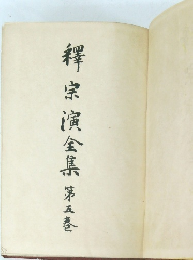 釋宗演全集 第五巻